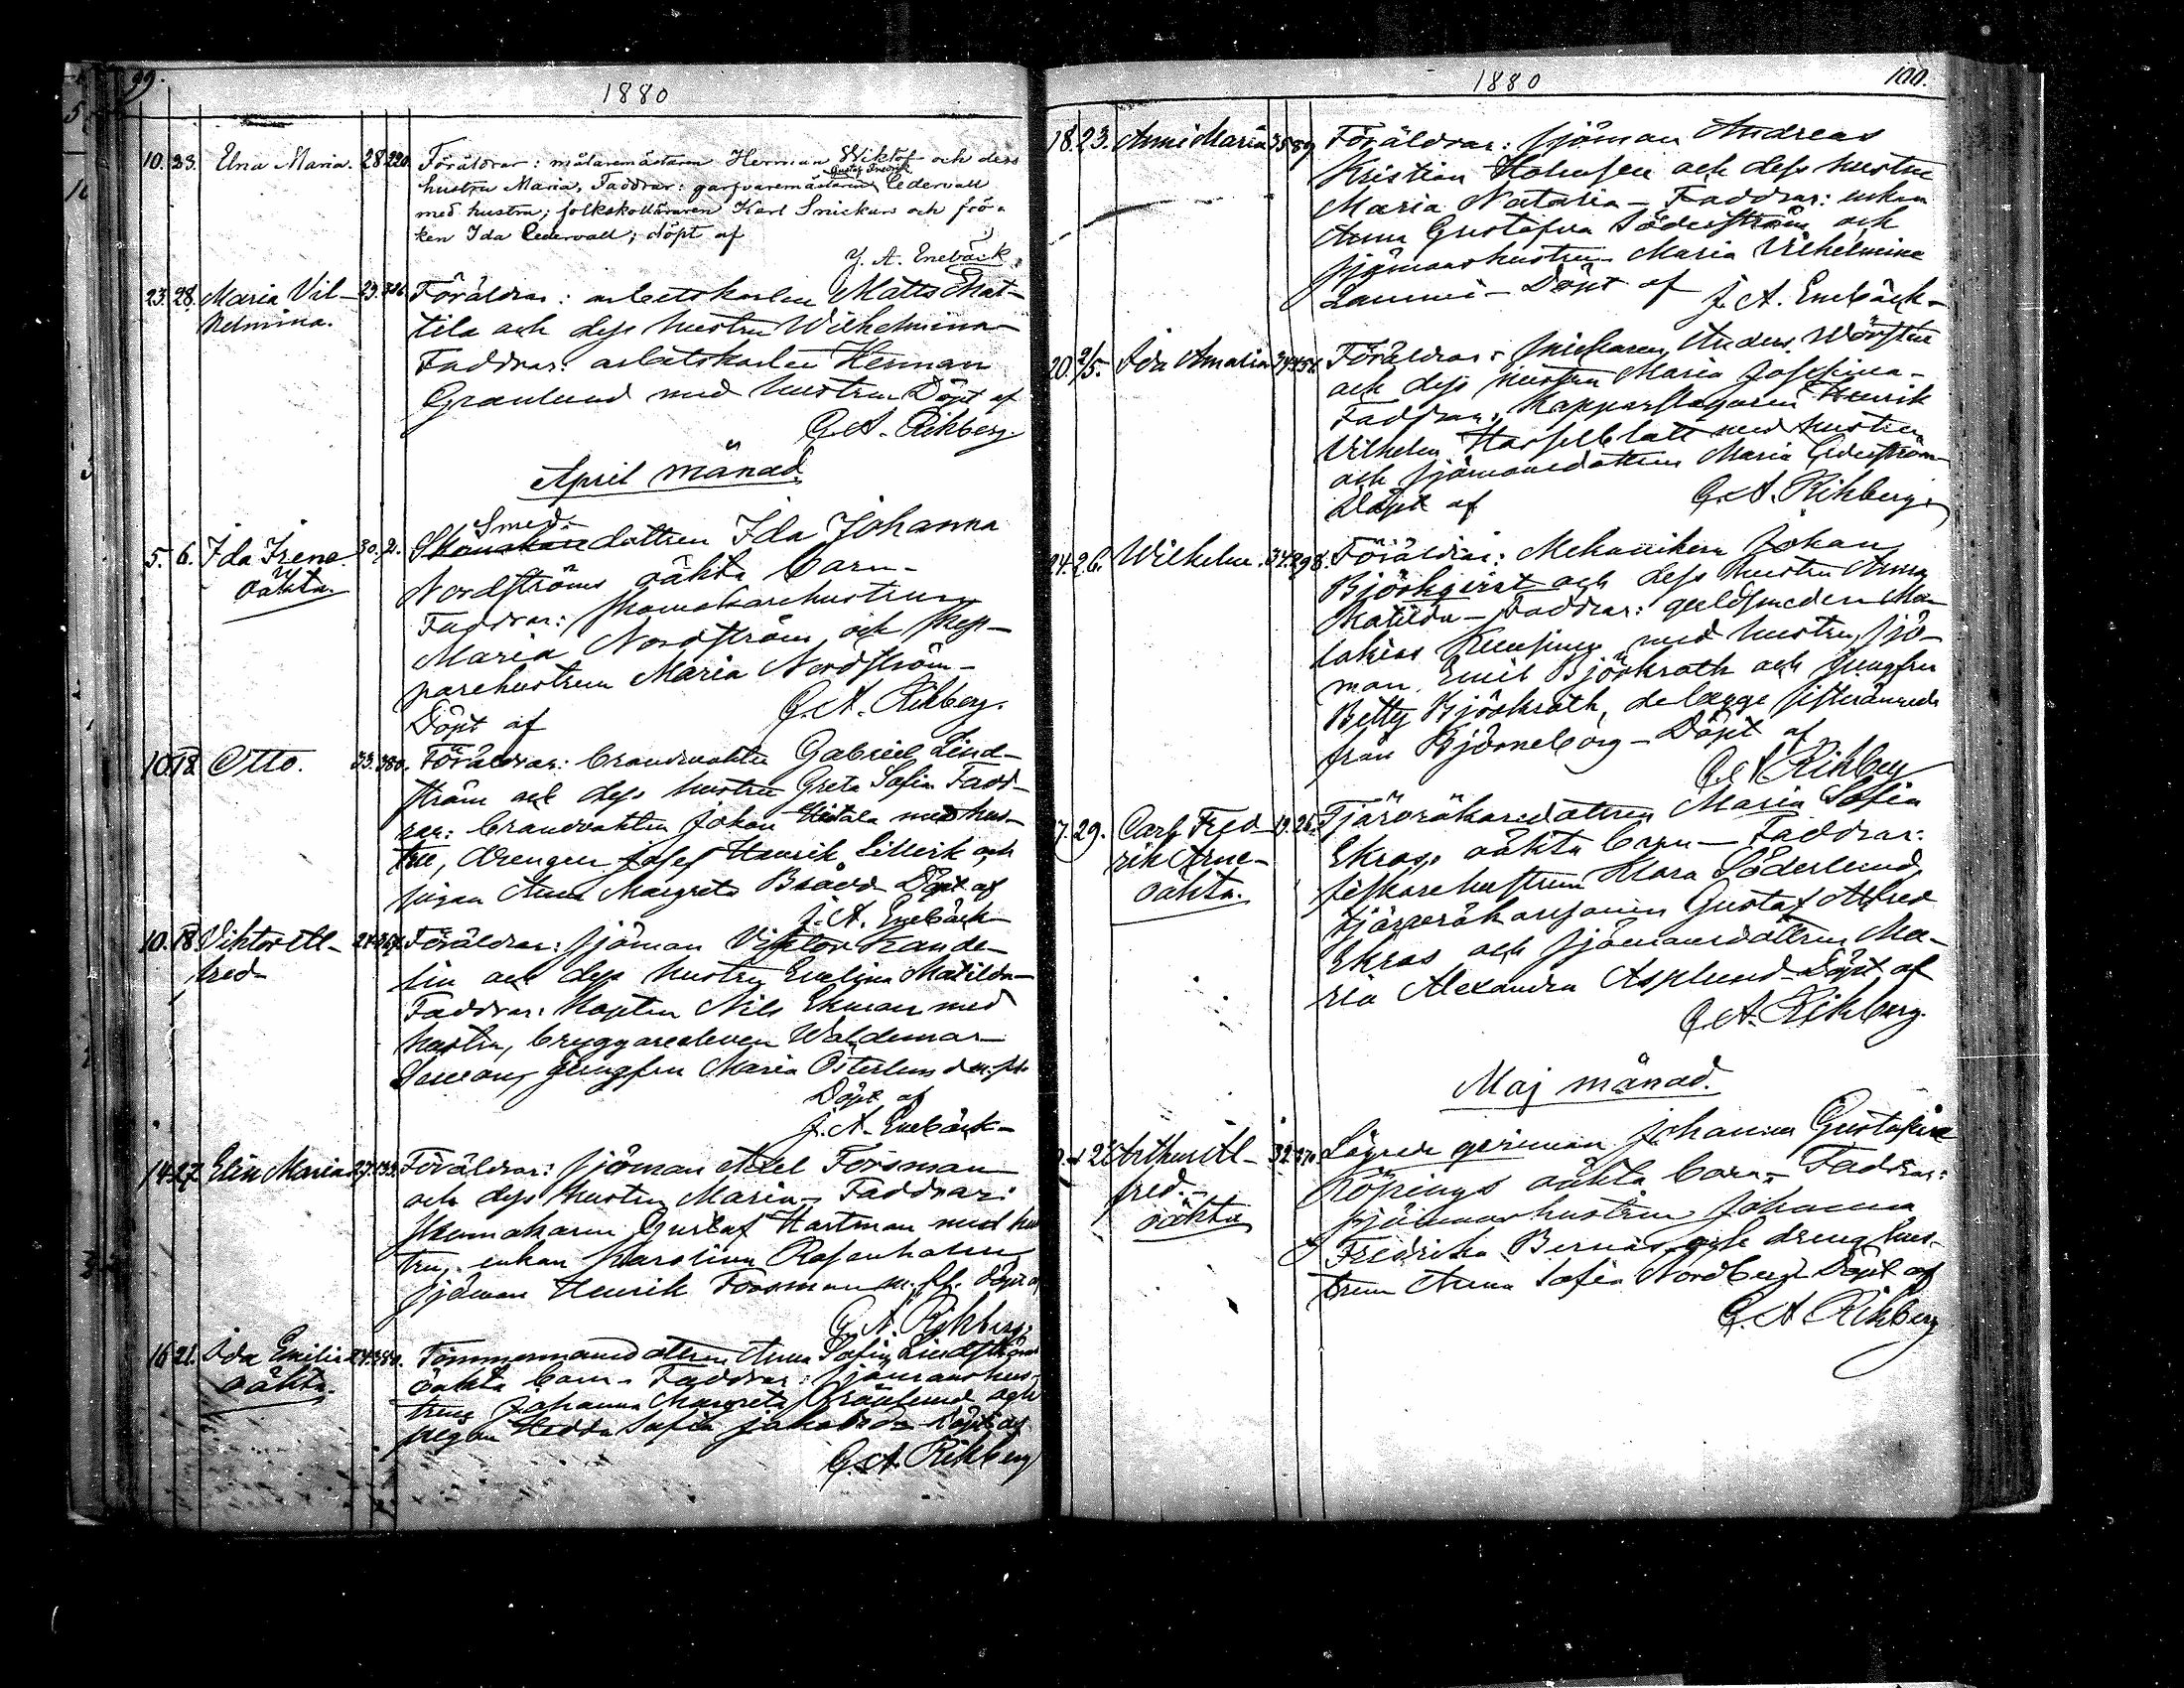 99.
1880
10. 23. Elna Maria. 28 220. Föräldrar: målaremästaren Herman Wiktof och dess
Gustaf Fredrik
hustru Maria, Faddrar: garfvaremästaren Cedervall
med hustru; folkskolläraren Karl Snickars och frö-
ken Ida Cedervall; döpt af
J. A. Enebäck.
23. 28. Maria Vil- 29. Föräldrar: arbetskarlen Matts Mat-
helmina. tila och dess hustru Wilhelmina
Faddrar: arbetskarlen Herman
Granlund med hustru Döpt af
G. A. Rihberg.
April månad.
Smed-
5. 6. Ida Irene 30. 2. dottren Ida Johanna
oäkta. Nordströms oäkta barn-
Faddrar: skomakarehustrun
Maria Nordström och skep-
parehustrun Maria Nordström-
Döpt af G. A. Rihberg.
10. 18. Otto. 33. 380. Föräldrar: brandvakten Gabriel Lind-
ström och dess hustru Greta Sofia Fadd-
rar: brandvakten Johan med hus-
tru, drengen Josef Henrik och
pigan Anna Margreta Döpt af
J. A. Enebäck
10. 18. Viktor Al- Föräldrar: sjöman Viktor Rande-
fred- lin och dess hustru Evelina Matilda-
Faddrar: Kapten Nils Ekman med
hustru, bryggareeleven Waldemar
jungfru Maria Österlund m. fl.
Döpt af
J. A. Enebäck-
14. 27. Elin Maria 27. 133. Föräldrar: sjöman Axel Forsman
och dess hustru Maria- Faddrar:
skomakaren Gustaf Hartman med hus
tru, enkan Karolina Rosenholm
sjöman Henrik Forsman m. fl. döpt af
G. A. Rihberg.
16. 21. Ida Emilia Timmermansdottren Anna Sofia Lindströms
oäkta. oäkta barn- Faddrar: sjömanshus-
trun Johanna Margreta Grönlund och
pigan Hedda Sofia Döpt af
G. A. Rihberg
1880
100.
18. 23. Anni Maria 35 89 Föräldrar: sjöman Andreas
Kristian och dess hustru
Maria Natalia- Faddrar: enkan
Anna Gustafva Söderström och
sjömanshustrun Maria Vilhelmina
Lammi- Döpt af J. A. Enebäck-
20. 2/5. Ida Amalia Föräldrar: snickaren Anders
och dess hustru Maria Josefina-
Faddrar: Kopparslagaren Henrik
Vilhelm Hasselblatt med hustru
och sjömansdottren Maria Cederström-
Döpt af G. A. Rihberg.
24. 26. Wilhelm. 34. 298. Föräldrar: Mekanikern Johan
Björkqvist och dess hustru Anna
Matilda- Faddrar: guldsmeden Ma-
lakias med hustru, sjö-
man Emil Björkroth och jungfru
Betty Björkroth, de begge sistnämnde
från Björneborg- Döpt af
G. A. Rihberg
27. 29. Carl Fred- 19. Tjäruräkaredottren Maria Sofia
rik Arne- Ekros's oäkta barn- Faddrar:
oäkta. fiskarehustrun Klara Söderlund,
Gustaf Alfred
Ekros och sjömansdottren Ma-
ria Alexandra Asplund- Döpt af
G. A. Rihberg.
Maj månad.
2. Arthur Al- 32. Johanna Gustafva
fred.- Köpings oäkta barn- Faddrar:
oäkta sjömanshustrun Johanna
Fredrika och dränghus-
trun Anna Sofia Nordberg- Döpt af
G. A. Rihberg